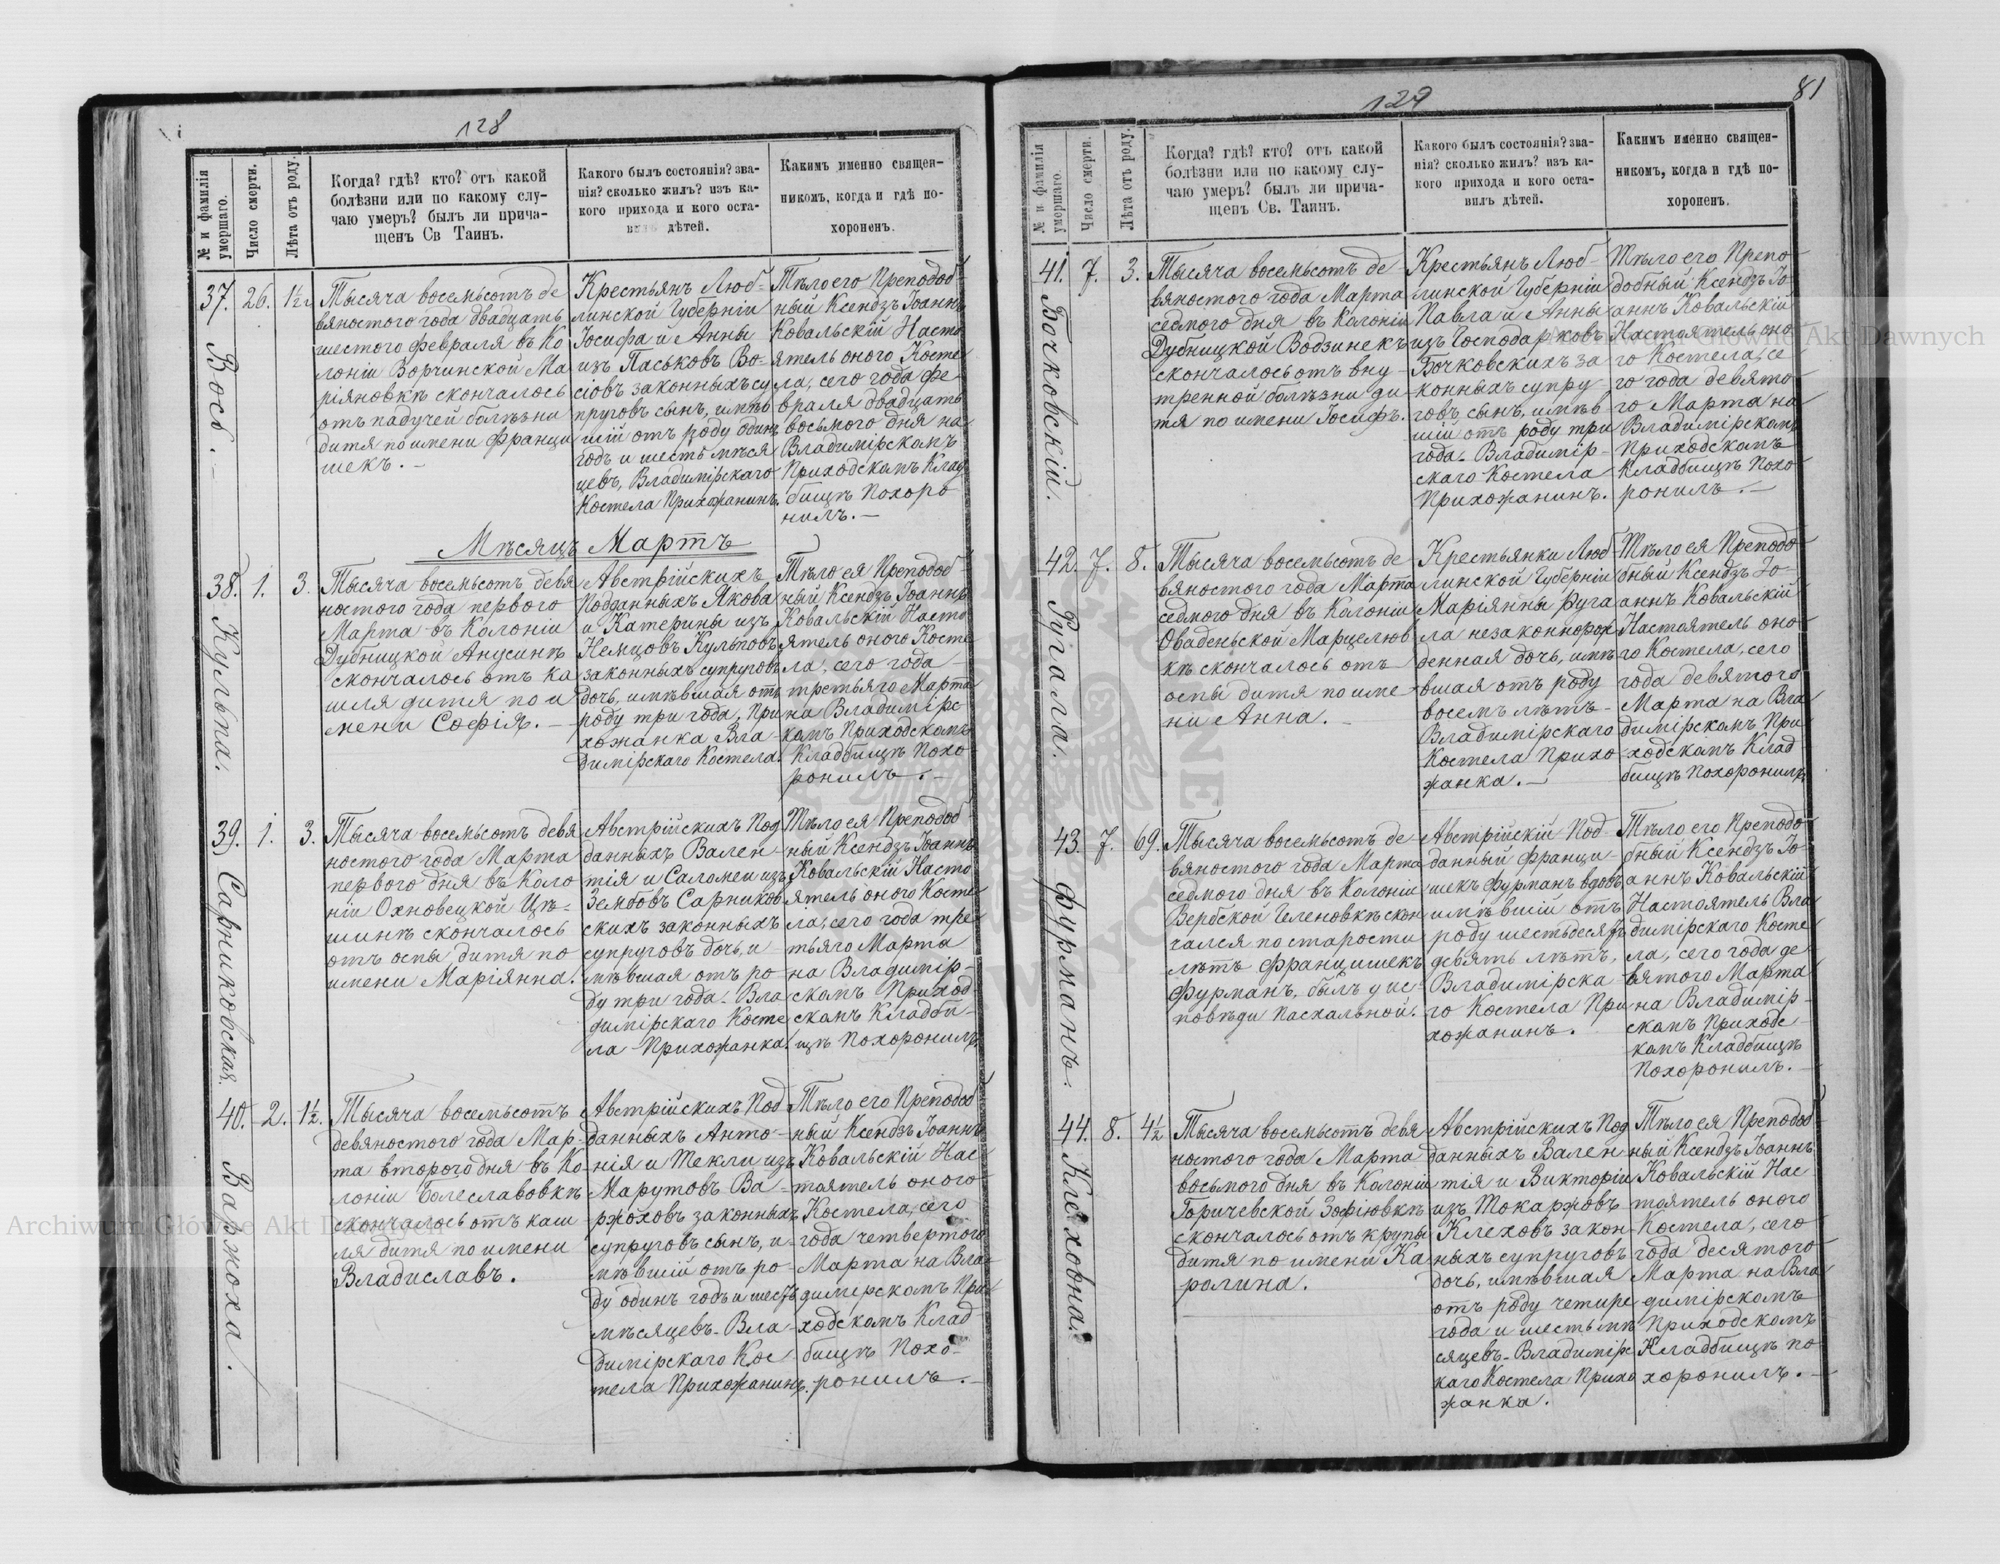 128
№ и фамилія умершаго.
Число смерти.
Лѣта отъ роду.
Когда? гдѣ? кто? отъ какой
болѣзни или по какому слу-
чаю умеръ? былъ ли прича-
щенъ Св Таинъ.
Какого былъ состоянія? зва-
нія? сколько жилъ? изъ ка-
кого прихода и кого оста-
вилъ дѣтей.
Какимъ именно священ-
никомъ, когда и гдѣ по-
хороненъ.
37. Вось.
26.
1½
Тысяча восемьсотъ де
вяностого года двадцать
шестого февраля въ Ко
лоніи Ворчинской Ма
ріяновкѣ скончалось
отъ падучей болѣзни
дитя по имени Франци
шекъ. –
Крестьянъ Люб-
линской Губерніи
Іосифа и Анны
изъ Паськовъ Во-
сіовъ законныхъ су
пруговъ сынъ, имѣв
шій отъ роду одинъ
годъ и шесть мѣся
цевъ, Владимірскаго
Костела Прихожанинъ.
Тѣло его Преподоб-
ный Ксендзъ Іоаннъ
Ковальскій Насто
ятель оного Косте
ла, сего года фе-
враля двадцать
восьмого дня на
Владимірскомъ
Приходскомъ Клад
бищѣ Похоро
нилъ. –
Мѣсяцъ Мартъ
38. Кульпа.
1.
3.
Тысяча восемьсотъ девя
ностого года первого
Марта въ Колоніи
Дубницкой Анусинѣ
скончалось отъ ка
шля дитя по и
мени Софія. –
Австрійскихъ
Подданныхъ Якова
и Катерины изъ
Немцовъ Кульповъ
законныхъ супруговъ
дочь, имѣвшая отъ
роду три года. При
хожанка Вла-
димірскаго Костела.
Тѣло ея Преподоб
ный Ксендзъ Іоаннъ
Ковальскій Насто
ятель оного Косте
ла, сего года –
третьяго Марта
на Владимірс
комъ Приходскомъ
Кладбищѣ Похо-
ронилъ. –
39. Сарниковская.
1.
3.
Тысяча восемьсотъ девя
ностого года Марта
первого дня въ Коло
ніи Охновецкой Цѣ-
шинѣ скончалось
отъ оспы дитя по
имени Маріянна.
Австрійскихъ Под
данныхъ Вален-
тія и Саломеи изъ
Зембовъ Сарников
скихъ законныхъ
супруговъ дочь, и-
мѣвшая отъ ро
ду три года. Вла
димірскаго Косте
ла Прихожанка.
Тѣло ея Преподоб-
ный Ксендзъ Іоаннъ
Ковальскій Насто
ятель оного Косте
ла, сего года тре-
тьяго Марта
на Владимір-
скомъ Приход-
скомъ Кладби-
щѣ Похоронилъ.
40. Варжоха.
2.
1½.
Тысяча восемьсотъ
девяностого года Мар-
та второго дня въ Ко
лоніи Болеславовкѣ
скончалось отъ каш
ля дитя по имени
Владиславъ.
Австрійскихъ Под
данныхъ Анто-
нія и Текли изъ
Марутовъ Ва-
ржоховъ законныхъ
супруговъ сынъ, и-
мѣвшій отъ ро-
ду одинъ годъ и шесть
мѣсяцевъ. Вла-
димірскаго Кос
тела Прихожанинъ.
Тѣло его Преподоб
ный Ксендзъ Іоаннъ
Ковальскій Нас-
тоятель оного
Костела, сего
года четвертого
Марта на Вла-
димірскомъ При-
ходскомъ Клад
бищѣ Похо-
ронилъ. –
129
81
№ и фамилія умершаго.
Число смерти.
Лѣта отъ роду.
Когда? гдѣ? кто? отъ какой
болѣзни или по какому слу-
чаю умеръ? былъ ли прича-
щенъ Св. Таинъ.
Какого былъ состоянія? зва-
нія? сколько жилъ? изъ ка-
кого прихода и кого оста-
вилъ дѣтей.
Какимъ именно священ-
никомъ, когда и гдѣ по-
хороненъ.
41. Бочковскій.
7.
3.
Тысяча восемьсотъ де-
вяностого года Марта
седмого дня въ Колоніи
Дубницкой Водзинекъ
скончалось отъ вну
тренной болѣзни ди
тя по имени Іосифъ.
Крестьянъ Люб-
линской Губерніи
Павла и Анны
изъ Господарковъ
Бочковскихъ за
конныхъ супру-
говъ сынъ, имѣв
шій отъ роду три
года. Владимір-
скаго Костела
Прихожанинъ.
Тѣло его Препо-
добный Ксендзъ Іо-
аннъ Ковальскій
Настоятель оно
го Костела, се
го года девято-
го Марта на
Владимірскомъ
Приходскомъ
Кладбищѣ Похо
ронилъ. –
42. Ругала.
7.
8.
Тысяча восемьсотъ де-
вяностого года Марта
седмого дня въ Колоніи
Оваденьской Марцелюв
кѣ скончалось отъ
оспы дитя по име
ни Анна. –
Крестьянки Люб
линской Губерніи
Маріянны Руга
ла незаконнорож
денная дочь, имѣ
вшая отъ роду
восемъ лѣтъ-
Владимірскаго
Костела Прихо
жанка. –
Тѣло ея Преподо-
бный Ксендзъ Іо-
аннъ Ковальскій
Настоятель оно-
го Костела, сего
года девятого
Марта на Вла
димірскомъ При
ходскомъ Клад
бищѣ Похоронилъ.
43. Фурманъ.
7.
69.
Тысяча восемьсотъ де-
вяностого года Марта
седмого дня въ Колоніи
Вербской Геленовкѣ скон
чался по старости
лѣтъ Францишекъ
Фурманъ, былъ у ис-
повѣди Пасхальной.
Австрійскій Под-
данный Франци-
шекъ Фурманъ вдовъ
имѣвшій отъ
роду шестьдесятъ
девять лѣтъ,
Владимірска-
го Костела При
хожанинъ.
Тѣло его Преподо-
бный Ксендзъ Іо-
аннъ Ковальскій
Настоятель Вла
димірскаго Косте
ла, сего года де
вятого Марта
на Владимір-
скомъ Приходс-
комъ Кладбищѣ
Похоронилъ. –
44. Клеховна.
8.
4½
Тысяча восемьсотъ девя
ностого года Марта
восьмого дня въ Колоніи
Горичевской Зофіювкѣ
скончалось отъ крупы
дитя по имени Ка
ролина.
Австрійскихъ Под
данныхъ Вален
тія и Викторіи
изъ Токаржовъ
Клеховъ закон-
ныхъ супруговъ
дочь, имѣвшая
отъ роду четире
года и шесть мѣ
сяцевъ. Владимірс
каго Костела Прихо
жанка.
Тѣло ея Преподоб
ный Ксендзъ Іоаннъ
Ковальскій Нас
тоятель оного
Костела, сего
года десятого
Марта на Вла
димірскомъ
Приходскомъ
Кладбищѣ по
хоронилъ. –
Archiwum Główne Akt Dawnych